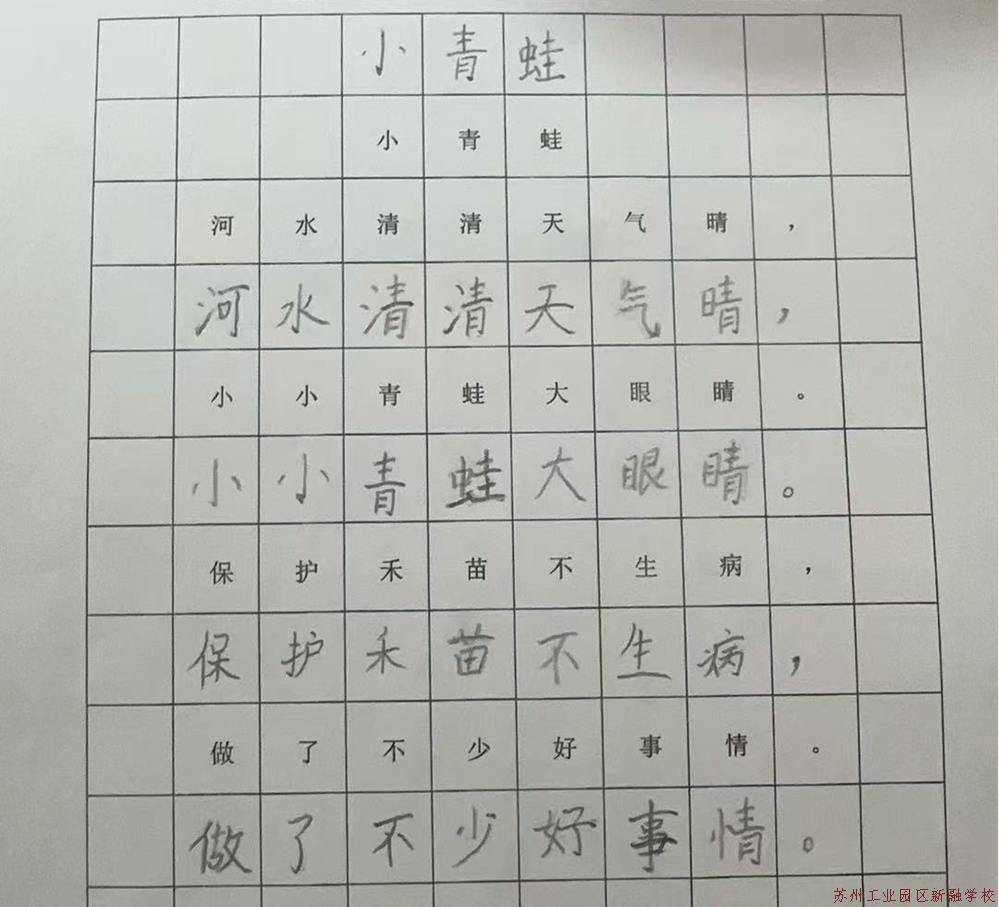 小青蛙
小青蛙
河水清清天气晴，
河水清清天气晴，
小小青蛙大眼睛。
小小青蛙大眼睛。
保护禾苗不生病，
保护禾苗不生病，
做了不少好事情。
做了不少好事情。
苏州工业园区新融学校